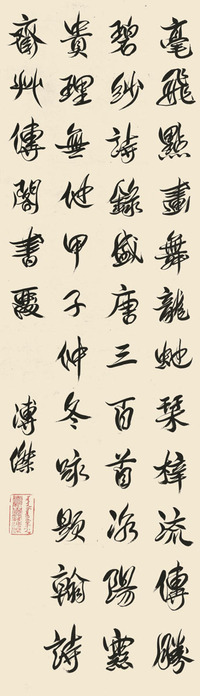 毫飛點畫舞龍虵琹梓流傳勝
碧紗詩錄盛唐三百首洛陽
貴理無他甲子仲冬咏翰詩
齋艸傳閣書
溥傑